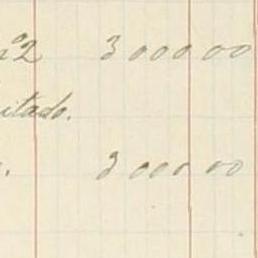 nº2 3 000 00
itado.
3 000 00